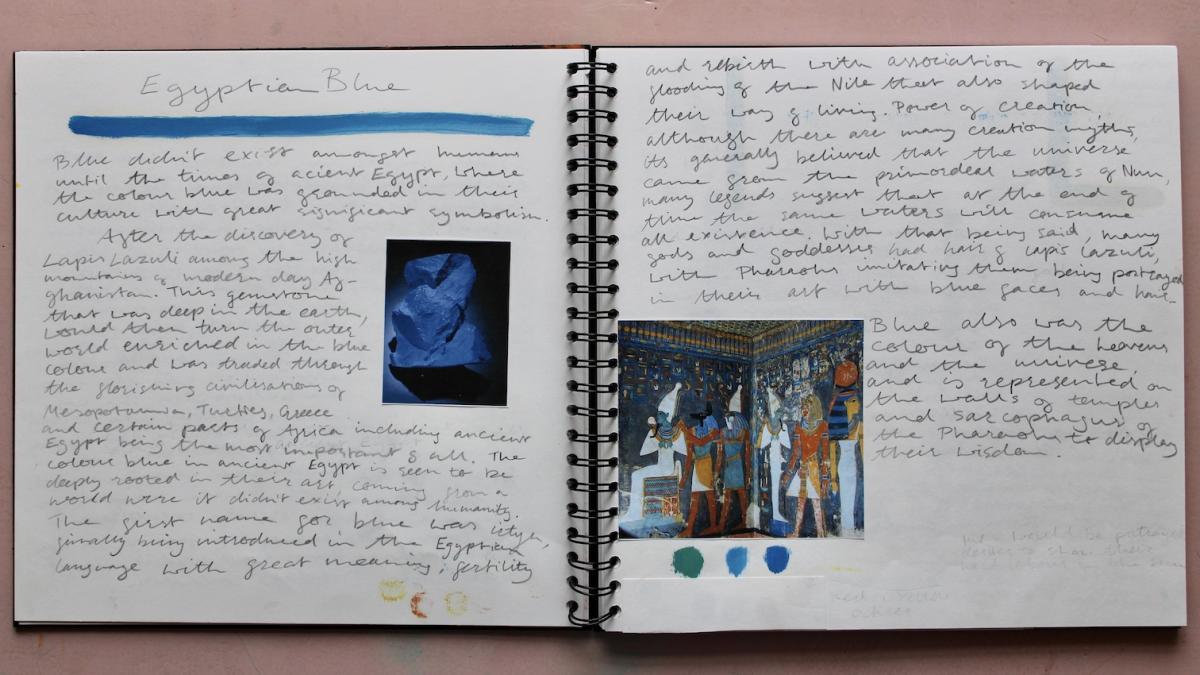 Egyptian Blue
Blue didn't exist amongst humans
until the times of acient Egypt, where
the colour blue was grounded in their
culture with great significant symbolism.
After the discovery of
Lapis Lazuli among the high
mountains of modern day Af-
ghanistan. This gemstone
that was deep in the earth,
would then turn the outer
world enriched in the blue
colour and was traded through
the florishing civilisations of
Mesopotamia, Turkies, Greece
and certain parts of Africa including ancient
Egypt being the most important of all. The
colour blue in ancient Egypt is seen to be
deeply rooted in their art, coming from a
world were it didn't exist among humanity.
The first name for blue was
finally being introduced in the Egyptian
language with great meaning; fertility
and rebirth with association of the
flooding of the Nile that also shaped
their way of living. Power of creation,
although there are many creation myths,
its generally believed that the universe
came from the primordeal waters of Nun,
many legends suggest that at the end of
time the same waters will consume
all existence. With that being said, many
gods and goddesses had hair of lapis lazuli,
with Pharaohs imitating them being portrayed
in their art with blue faces and hair.
Blue also was the
colour of the heavens
and the universe,
and is represented on
the walls of temples
and sarcophagus of
the Pharaohs to display
their wisdom.
would be portrayed
their
in the